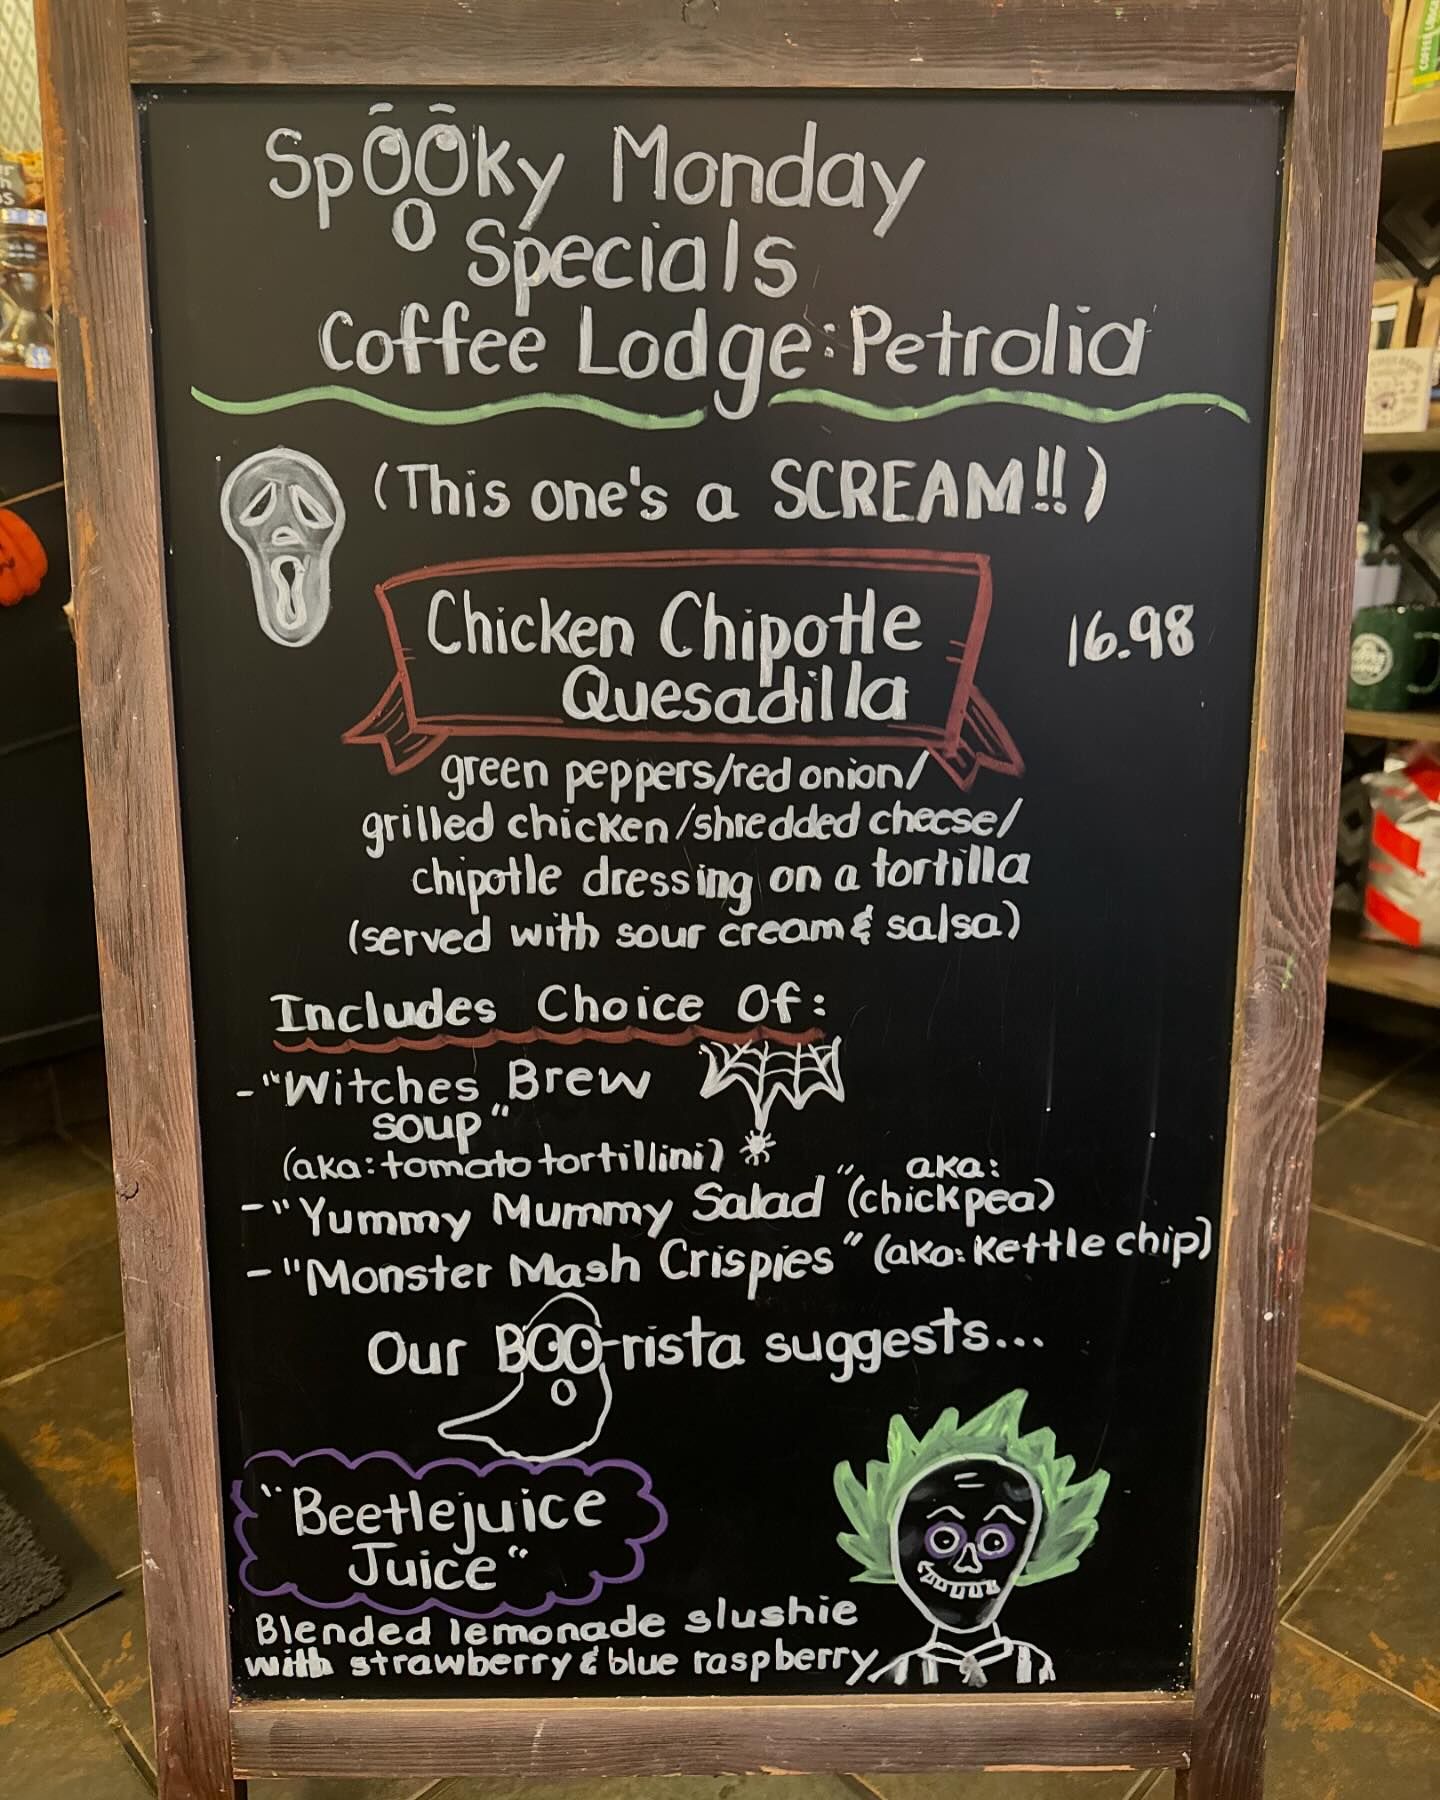 Spooky Monday
Specials
Coffee Lodge: Petrolia
(This one's a SCREAM!!)
Chicken Chipotle
Quesadilla
16.98
green peppers/red onion/
grilled chicken/shredded cheese/
chipotle dressing on a tortilla
(served with sour cream & salsa)
Includes Choice Of:
-"Witches Brew
soup"
(aka: tomato tortillini)
-"Yummy Mummy Salad" aka: (chickpea)
-"Monster Mash Crispies" (aka: Kettle chip)
Our BOO-rista suggests...
"Beetlejuice
Juice"
Blended lemonade slushie
with strawberry & blue raspberry